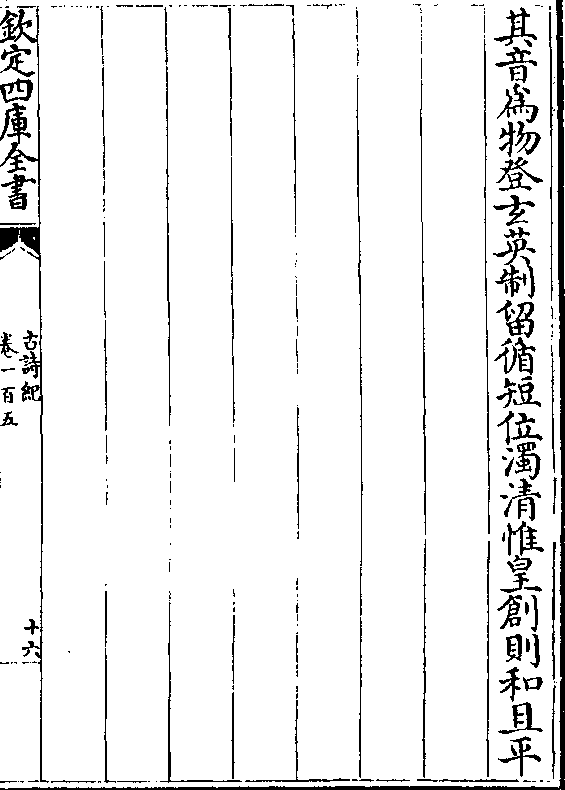 其音為物登玄英制留循短位濁清惟皇創則和且平
欽定四庫全書
古詩紀
卷一百五
十六